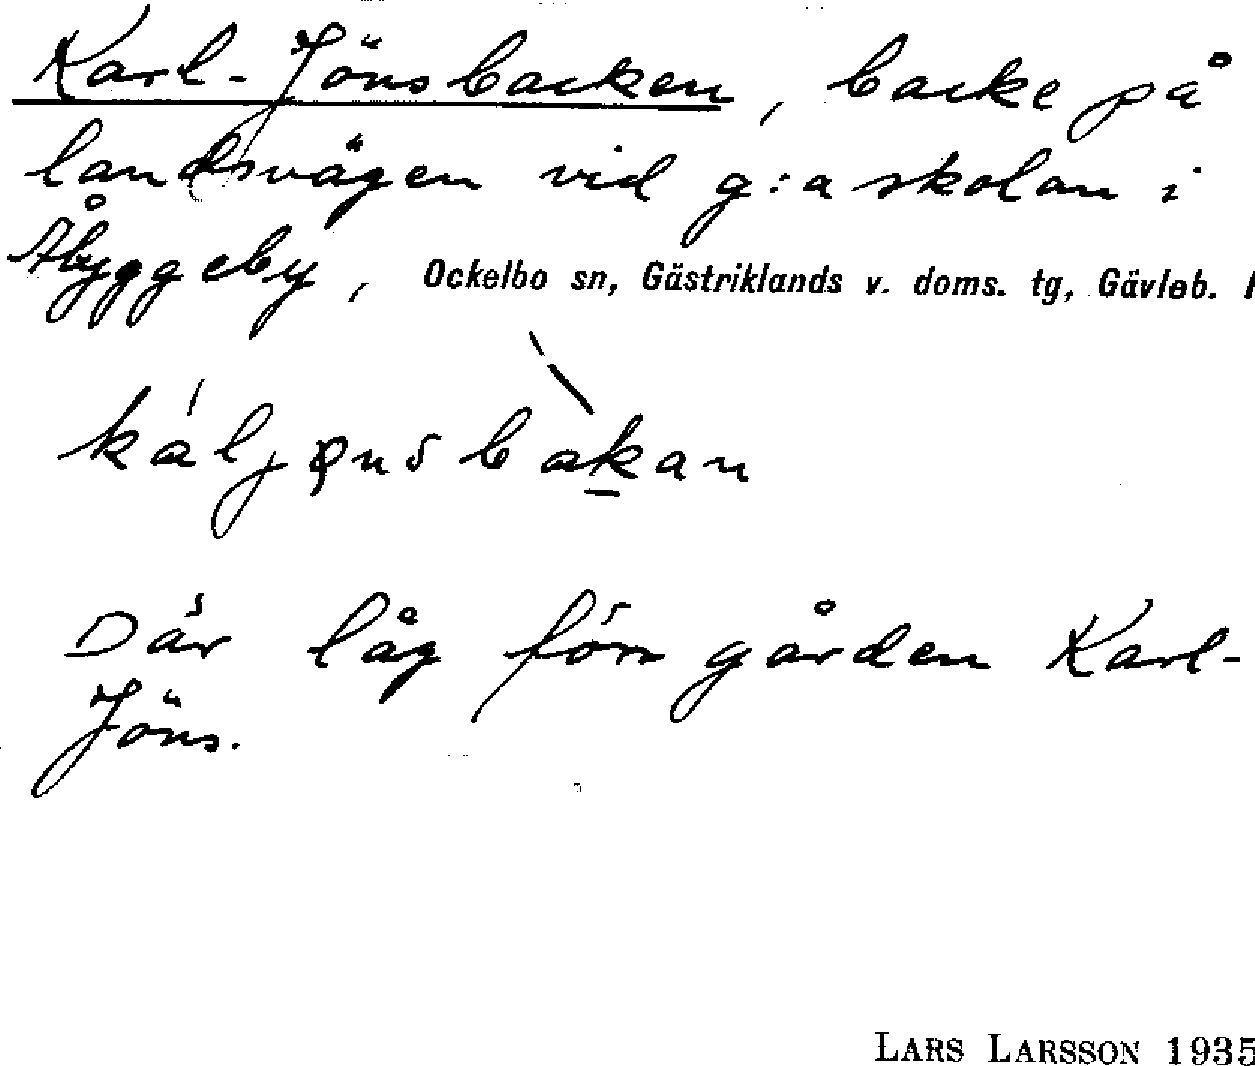 Karl-Jönsbacken, backe på
landsvägen vid g:a skolan i
Åbyggeby, Ockelbo sn, Gästriklands v. doms. tg, Gävleb.
Där låg förr gården Karl-
Jöns.
LARS LARSSON 1935